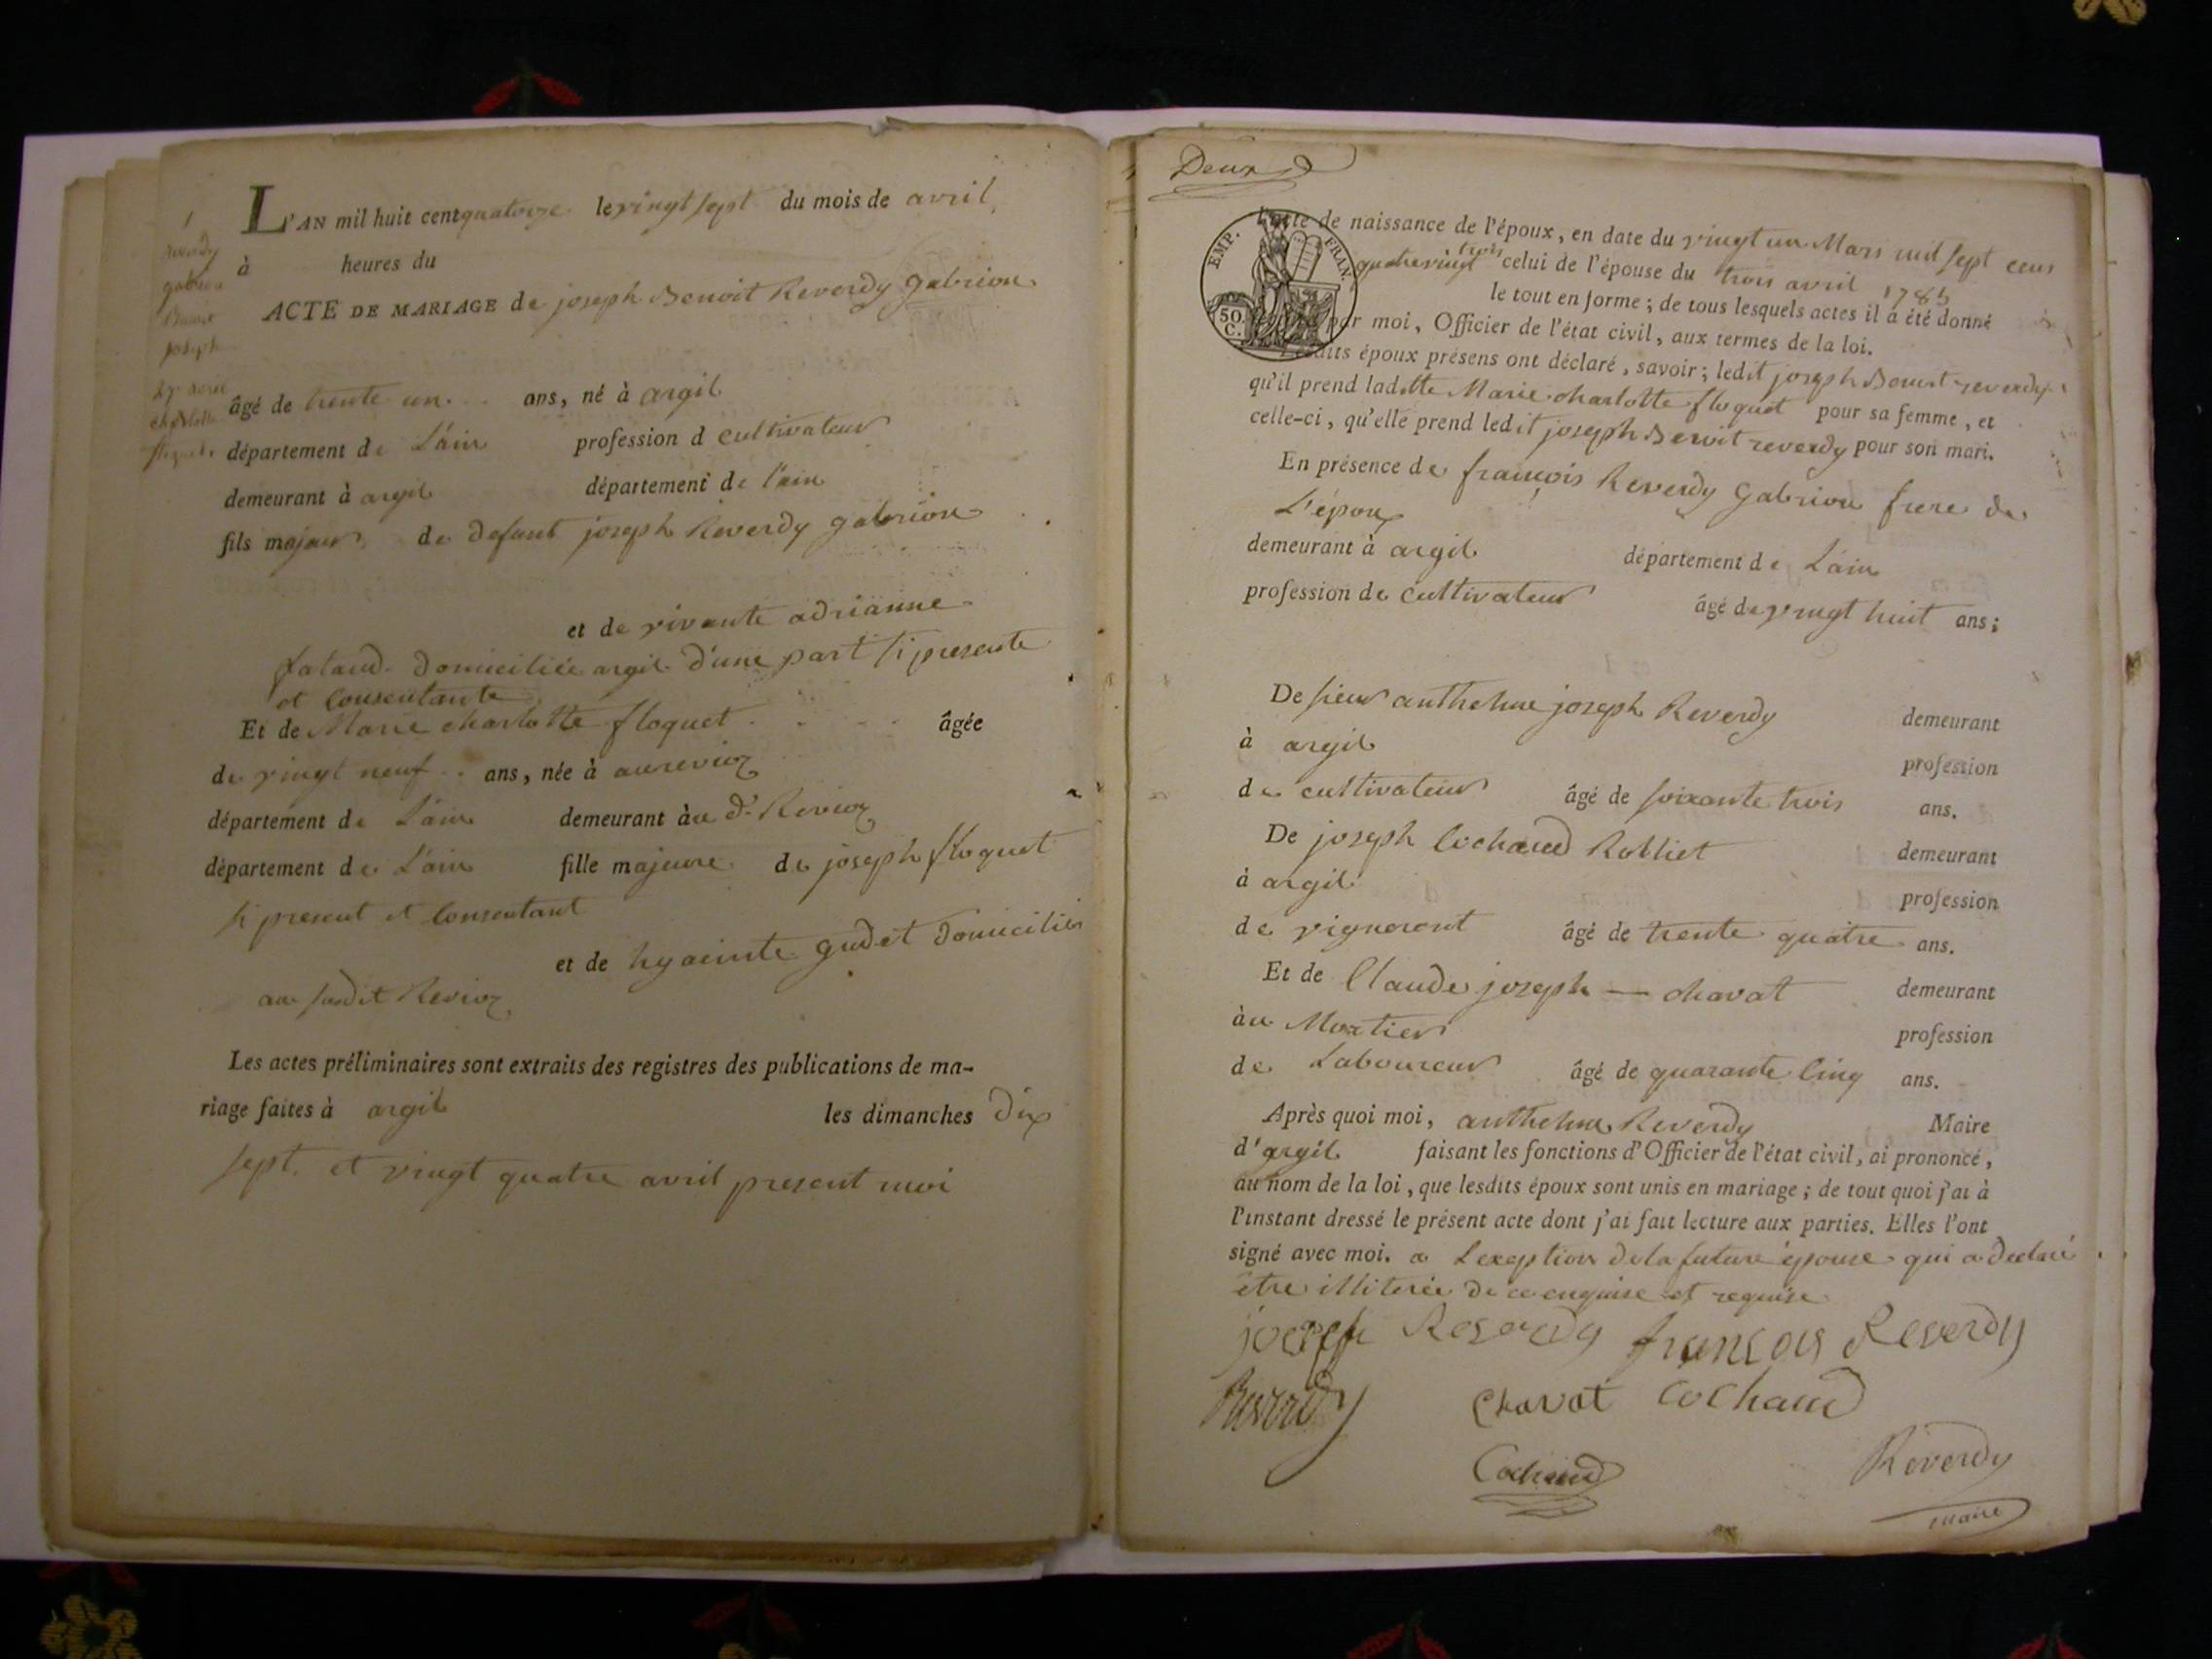 1
reverdy
gabrion
Benoit
joseph
27 avril
charlotte
floquet
L'AN mil huit cent quatorze le vingt sept du mois de avril
à heures du
ACTE DE MARIAGE de joseph Benoit Reverdy gabrion
âgé de trente un ans, né à argil
département de L'ain profession d cultivateur
demeurant à argil département de l'ain
fils majeur de defunt joseph Reverdy gabrion
et de vivante adrianne
domiciliée argil d'une part si presente
et Consentante
Et de Marie charlotte floquet âgée
de vingt neuf ans, née à au revioz
département de L'ain demeurant à au dt Revioz
département de L'ain fille majeure de joseph floquet
si present et Consentant
et de hyacinte gudet domiciliés
au susdit Revioz
Les actes préliminaires sont extraits des registres des publications de ma-
riage faites à argil les dimanches dix
sept et vingt quatre avril present moi
Deux
EMP. FRAN.
50. C.
L'acte de naissance de l'époux, en date du vingt un Mars mil sept cens
quatrevingt trois celui de l'épouse du trois avril 1785
le tout en forme ; de tous lesquels actes il a été donné
par moi, Officier de l'état civil, aux termes de la loi.
Lesdits époux présens ont déclaré, savoir ; ledit joseph Benoit reverdy
qu'il prend ladite Marie charlotte floquet pour sa femme, et
celle-ci, qu'elle prend ledit joseph Benoit reverdy pour son mari.
En présence de françois Reverdy gabrion frere de
L'époux
demeurant à argil département de L'ain
profession de cultivateur âgé de vingt huit ans ;
De sieur anthelme joseph Reverdy demeurant
à argil profession
de cultivateur âgé de soixante trois ans.
De joseph Cochand Rolliet demeurant
à argil profession
de vigneront âgé de trente quatre ans.
Et de Claude joseph — chavat demeurant
àu Mortier profession
de Laboureur âgé de quarante Cinq ans.
Après quoi moi, anthelme Reverdy Maire
d'argil faisant les fonctions d'Officier de l'état civil, ai prononcé,
au nom de la loi, que lesdits époux sont unis en mariage ; de tout quoi j'ai à
l'instant dressé le présent acte dont j'ai fait lecture aux parties. Elles l'ont
signé avec moi. a L'exeption de la future épouse qui a déclaré
être illiterée de ce enquise et requise
joseph Reverdy françois Reverdy
Reverdy chavat Cochand
Cochand Reverdy
maire